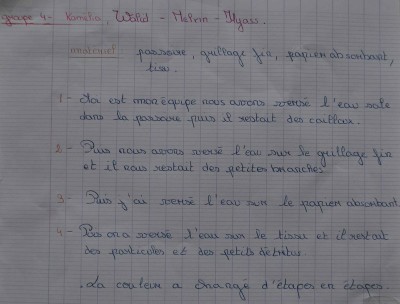 groupe 4- Kamelia, Walid - Melvin - Ilyass.
matériel : passoire, grillage fin, papier absorbant,
tissu.
1- Ja est mon équipe nous avons versé l'eau sale
dans la passoire puis il restait des cailloux.
2- Puis nous avons versé l'eau sur le grillage fin
et il nous restait des petites branches
3- Puis j'ai versé l'eau sur le papier absorbant
4- Puis on a versé l'eau sur le tissu et il restait
des particules et des petits détritus.
. La couleur a changé d'étapes en étapes.